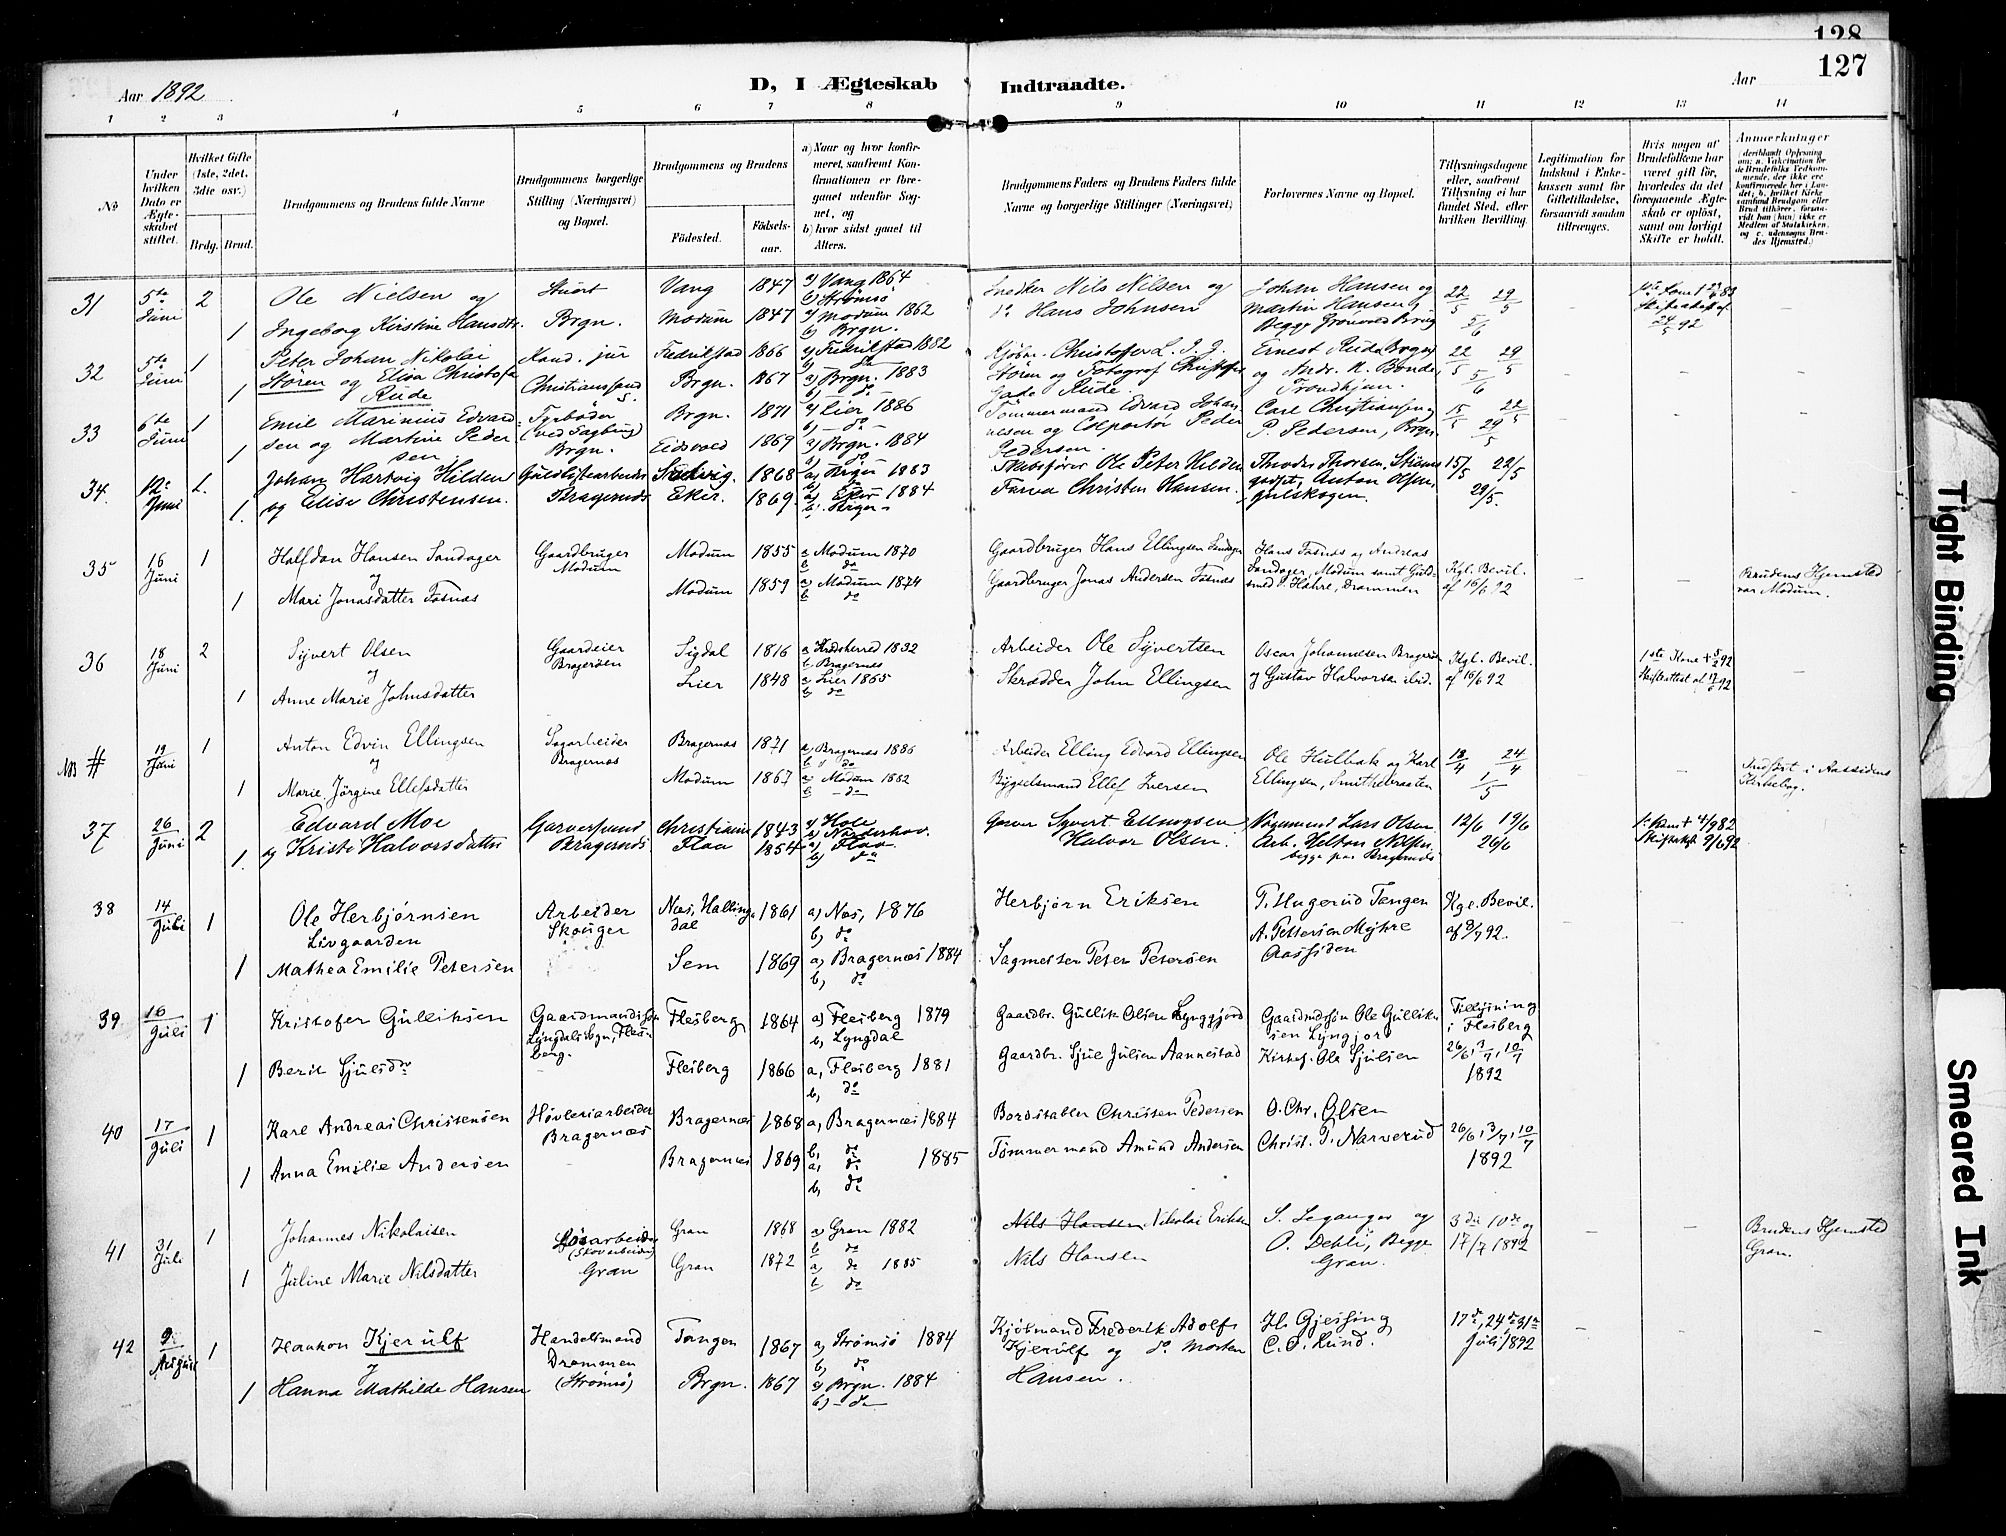 128
127
Aar 1892
D, I Ægteskab Indtraadte.
Aar
1 2 3 4 5 6 7 8 9 10 11 12 13 14
No
Under hvilken Dato er Ægteskabet stiftet.
Hvilket Gifte (1ste, 2det, 3die osv.)
Brdg. Brud.
Brudgommens og Brudens fulde Navne
Brudgommens borgerlige Stilling (Næringsvei) og Bopæl.
Brudgommens og Brudens
Fødested.
Fødselsaar.
a) Naar og hvor konfirmeret, saafremt Konfirmationen er foregaaet udenfor Sognet, og
b) hvor sidst gaaet til Alters.
Brudgommens Faders og Brudens Faders fulde Navne og borgerlige Stillinger (Næringsvei)
Forlovernes Navne og Bopæl.
Tillysningsdagene eller, saafremt Tillysning ei har fundet Sted, efter hvilken Bevilling.
Legitimation for Indskud i Enkekassen samt for Giftetilladelse, forsaavidt saadan tiltrænges.
Hvis nogen af Brudefolkene har været gift før, hvorledes da det foregaaende Ægteskab er opløst, samt om lovligt Skifte er holdt.
Anmærkninger
31 5te Juni 2 Ole Nielsen og Vang 1847 a) Vang 1864 b) Strømsö Snedker Nils Nilsen og Johan Hansen og 22/5 29/5
1 Ingeborg Kirstine Hansdtr. Brgn. Modum 1847 a) Modum 1862 b) Brgn. do Hans Johnsen Martin Hansen, Begge 5/6
32 5te Juni 1 Peter Johan Nikolai Kand. jur Fredrikstad 1866 a) Fredrikstad 1882 Kjøbm. Christoffer L. Ernest Rude Brgn 22/5 29/5
1 Stören og Elisa Christofa Rude Christianssund Brgn. 1867 a) Brgn. 1883 b) do Stören og Fotograf Christoffer Gade Rude. og Andr. K. Bonde, Trondhjem. 5/6
33 6te Juni 1 Emil Marinius Edvard- Fyrböder (ved Sagbrug) Brgn. 1871 a) Lier 1886 b) do Tömmermand Edvard Johannesen og Colportör Peder Carl Christiansen og 15/5 22/5
1 sen og Martine Pedersen Brgn. Eidsvold 1869 a) Brgn. 1884 b) do Pedersen. P. Pedersen, Brgn. 29/5
34. 12 Juni 1. Johan Hartvig Hilden 1868 a) Brgn 1883 Skibsförer Ole Peter Hilden Theodor Thorsen, 15/5 22/5
1. og Elise Christensen. Bragernæs Eker. 1869. a) Eker 1884 Christen Hansen. Anton Olsen, Gulskogen. 29/5.
35 16 Juni 1 Halfdan Hansen Sandager Gaardbruger Modum Modum 1855 a Modum 1870 b do Gaardbruger Hans Ellingsen Sandager Hans Fosnæs og Andreas Kgl. Bevil.
og
1 Mari Jonasdatter Fosnæs Modum 1859 a) Modum 1874 b do Gaardbruger Jonas Andersen Fosnæs Sandager, Modum samt Guldsmed P. Hahre, Drammen af 16/6 92 Brudens Hjemsted var Modum.
36 18 Juni 2 Syvert Olsen Gaardeier Bragernæs Sigdal 1816 a Krødsherred 1832 b Bragernæs Arbeider Ole Syvertsen Oscar Johannesen Bragernæs Kgl. Bevil. 1ste Kone + 5/2 92
og
1 Anne Marie Johnsdatter Lier 1848 a) Lier 1865 b do Skrædder John Ellingsen og Gustav Halvorsen ibid. af 16/6 92
NB # 19 Juni 1 Anton Edvin Ellingsen Sagarbeider Bragernæs Bragernæs 1871 a) Bragernæs 1886 b do Arbeider Elling Edvard Ellingsen Ole Hulbak og Karl 18/4 24/4
og
1 Marie Jörgine Ellefsdatter Modum 1867 a) Modum 1882 b do Bygselsmand Ellef Iversen Ellingsen, Smithebraaten 1/5 Indført i Aassidens Kirkebog.
37 26 Juni 2 Edvard Moe Garversvend Christiania 1843 a) Hole b) Norderhov. Garver Syvert Ellingsen Lars Olsen 12/6 19/6
1. og Kristi Halvorsdatter Bragernæs Flaa 1854 a) Flaa b) do Halvor Olsen. Arb. Helton Nilsen begge paa Bragernæs 26/6
38 14 Juli 1 Ole Herbjørnsen Livgaarden Arbeider Skouger Næs, Hallingdal 1861 a) Næs, 1876 b, do Herbjørn Eriksen T. Hugerud Tangen Kgl. Bevil. af 8/7 92.
1 Mathea Emilie Petersen Sem 1869 a) Bragernæs 1884 b, do Sagmester Peter Petersen A. Pettersen Myhre Aassiden
39 16 Juli 1 Kristofer Gulliksen Gaardmandssøn Lyngdals Sogn, Flesberg. Flesberg 1864 a) Flesberg 1879 b, Lyngdal Gaardbr. Gullik Olsen Lynggjord Gaardmdssøn Ole Gulliksen Lyngjord Tillysning i Flesberg
1 Berit Sjulsdr Flesberg 1866 a, Flesberg 1881 b, do Gaardbr. Sjul Julsen Aannestad Kirkes. Ole Sjulsen 26/6, 3/7, 10/7 1892
40 17 Juli 1 Karl Andreas Christensen Høvleriarbeider Bragernæs Bragernæs 1868 a, Bragernæs 1884 b, do Bordstabler Christen Pedersen O. Chr. Olsen 26/6, 3/7, 10/7
1 Anna Emilie Andersen Bragernæs 1869 a, do 1885 b, do Tømmermand Amund Andersen Christ. P. Narverud 1892
41 31 Juli 1 Johannes Nikolaisen Løsarbeider (Skovarbeider) Gran 1868 a) Gran 1882 b do Nils Hansen Nikolai Eriksen S. Leganger og 3die 10de og Brudens Hjemsted Gran.
1 Juline Marie Nilsdatter Gran Gran 1872 a) do 1885 b do Nils Hansen O. Dehli, Begge Gran. 17/7 1892
42 9 August 1 Haakon Kjerulf Handelsmand Tangen 1867 a) Strømsö 1884 b, do Kjøbmand Frederik Adolf H. Gjessing 17de, 24de 31te
1 Hanna Mathilde Hansen Drammen (Strømsö) Brgn. 1867 a) Brgn. 1884 b) do Kjerulf og do Morten Hansen. C. O. Lund. Juli 1892
Tight Binding
Smeared Ink